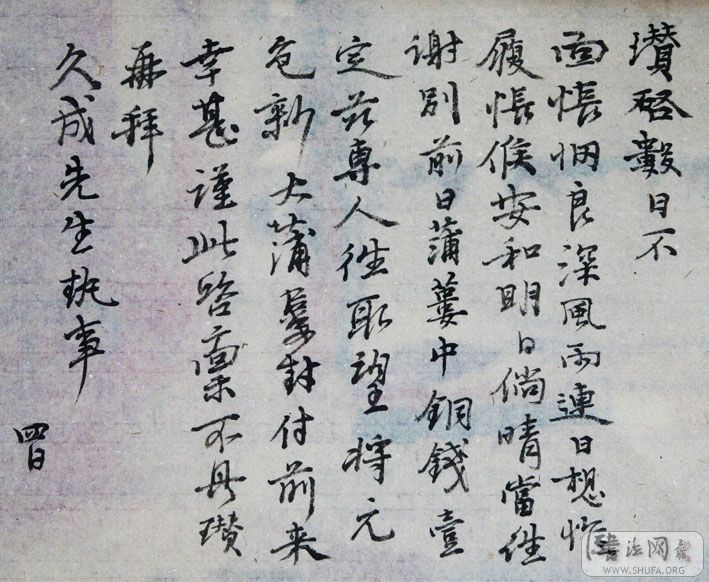 瓚啓數日不
面悵惘良深風雨連日想惟
履悵候安和明日倘晴當往
謝別前日蒲蔞中銅錢壹
定茲專人往取望將元
包新大蒲封付前来
幸甚謹此啓稟不具瓚
再拜
久成先生執事
四日
書法网
WWW.SHUFA.ORG